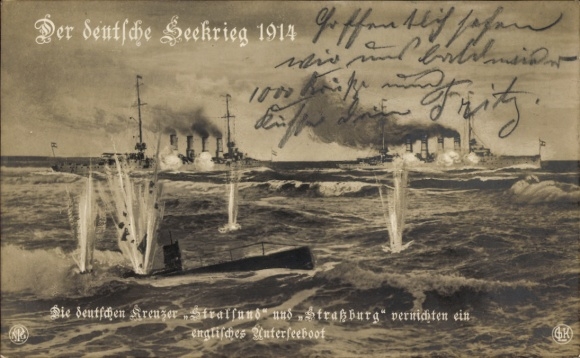 Der deutsche Seekrieg 1914
Hoffentlich sehen
wir uns bald wieder
1000 Grüße und
Küsse Dein Fritz.
Die deutschen Kreuzer „Stralsund“ und „Straßburg“ vernichten ein
englisches Unterseeboot